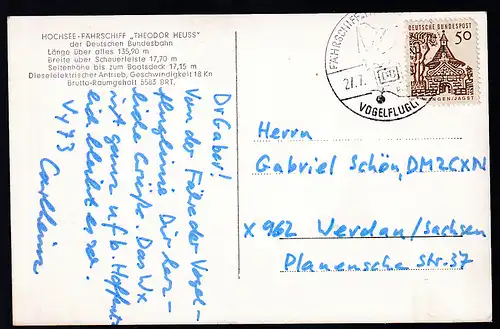 HOCHSEE-FÄHRSCHIFF „THEODOR HEUSS"
der Deutschen Bundesbahn
Länge über alles 135,90 m
Breite über Scheuerleiste 17,70 m
Seitenhöhe bis zum Bootsdeck 17,15 m
Dieselelektrischer Antrieb, Geschwindigkeit 18 Kn
Brutto-Raumgehalt 5583 BRT.
Dr Gaber!
Von der Fähre der Vogel-
fluglinie Dir herz-
liche Grüße. Das Wx
ist ganz ufb. Hoffent-
lich bleibt es so.
Vy 73
Carlheinz
FÄHRSCHIFF
27.7.
VOGELFLUGLI
DEUTSCHE BUNDESPOST
50
ELLWANGEN/JAGST
Herrn
Gabriel Schön, DM2CXN
X 962 Werdau/Sachsen
Planensche Str. 37